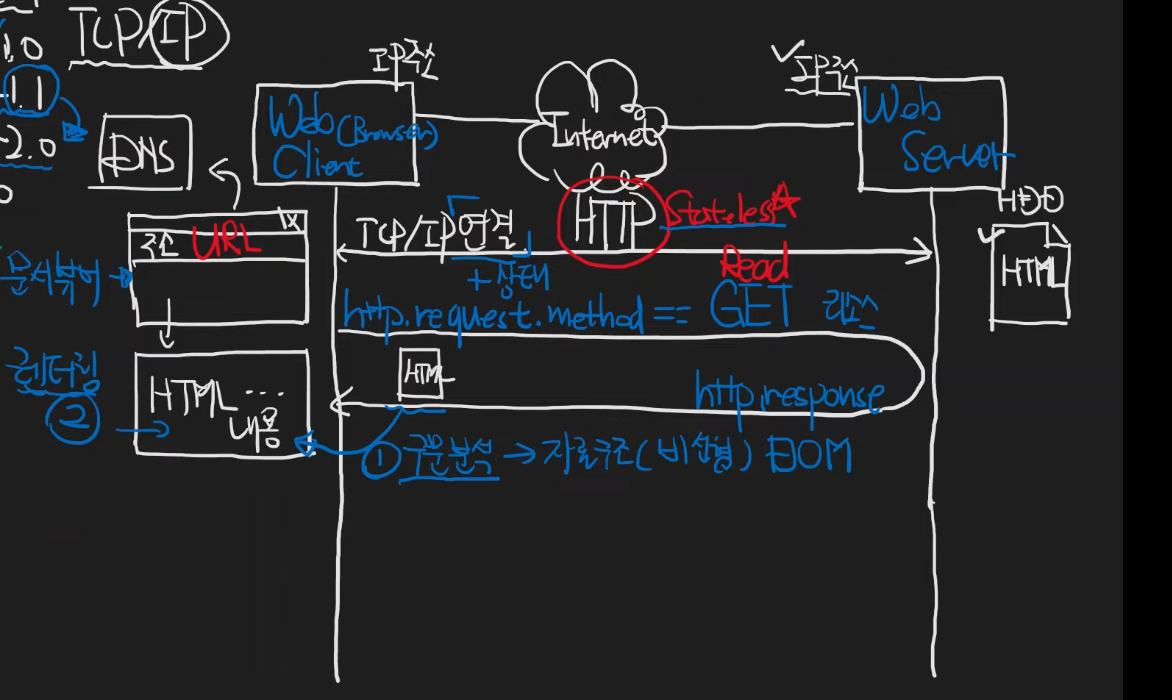 TCP/IP
1.0
1.1
2.0
0
DNS
IP주소
Web (Browser)
Client
Internet
✓IP주소
Web
Server
HDD
✓
HTML
X
주소 URL
문서뷰어
TCP/IP 연결
+ 상태
HTTP
Stateless☆
Read
http.request.method == GET 리소스
HTML
http.response
렌더링
②
HTML ...
내용
① 구문분석 → 자료구조(비선형) DOM